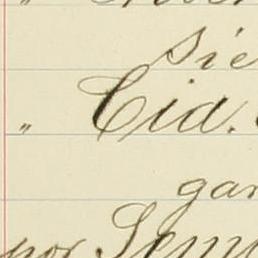 sie
" Cia.
gar
por Sem